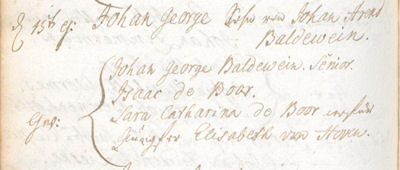 d 15t ej: Johan George Sohn von Johan Arend
Baldewein.
Johan George Baldewein. Senior.
Isaac de Boor.
Gev: Sara Catharina de Boor
Jungfer Elisabeth von Hoven.